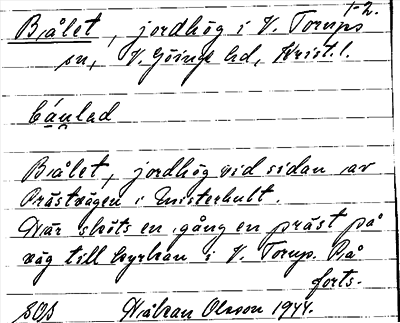 1-2.
Bålet, jordhög i V. Torups
sn, V. Göinge hd, Krist. l.
Bålet, jordhög vid sidan av
Prästvägen i Misterhult.
Här sköts en gång en präst på
väg till kyrkan i V. Torup. På
forts.
SOS Håkan Olsson 1944.